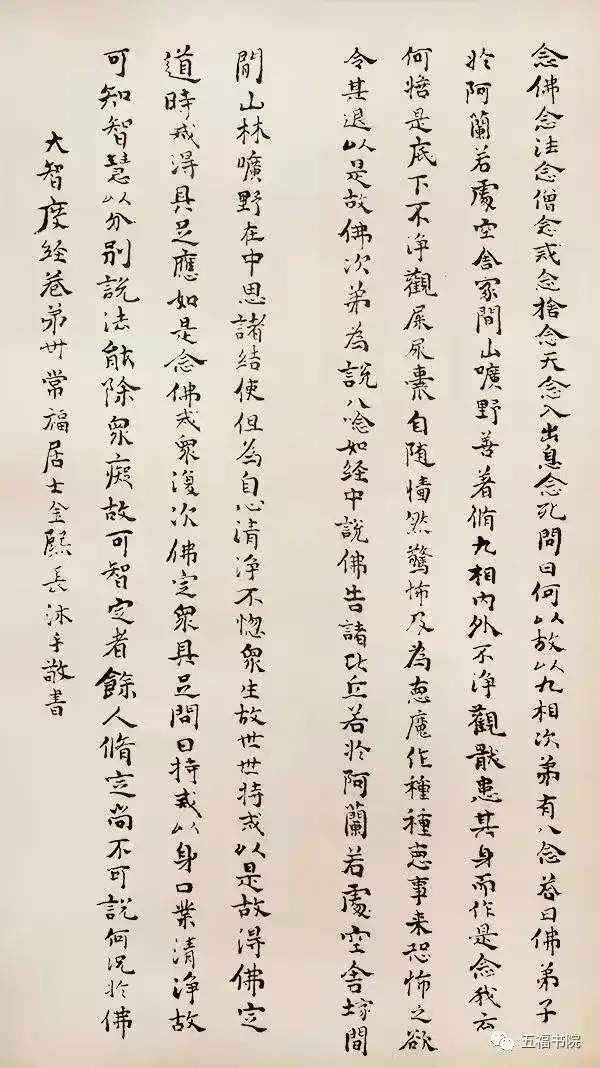 念佛念法念僧念戒念捨念天念入出息念死問曰何以故以九相次弟有八念荅曰佛弟子
於阿蘭若處空舍冢間山曠野善著脩九相內外不淨觀猒患其身而作是念我云
何擔是底下不淨觀屎尿囊自随懎然驚怖及為惡魔作種種惡事来恐怖之欲
令其退以是故佛次弟為說八念如经中說佛告諸比丘若於阿蘭若處空舍塚間
間山林曠野在中思諸結使但為自心清淨不惱衆生故世世持戒以是故得佛定
道時戒得具足應如是念佛戒衆復次佛定衆具足問曰持戒以身口業清淨故
可知智慧以分別說法能除衆癡故可智定者餘人脩定尚不可說何況於佛
大智度经卷弟卅常福居士金熙長沐手敬書
五福书院